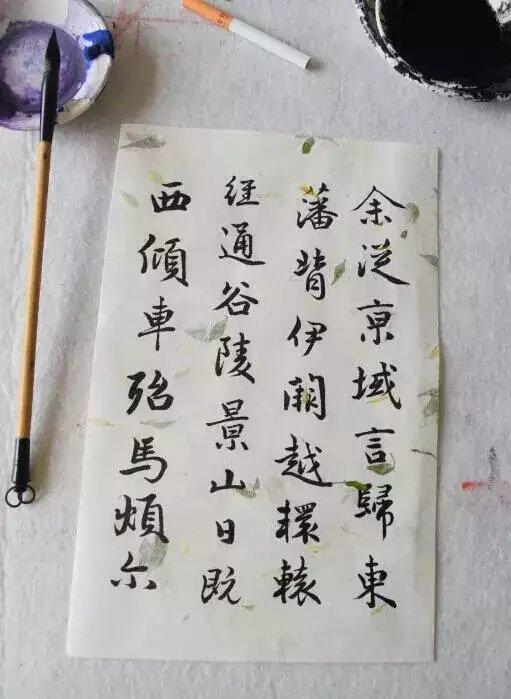 余从京域言歸東
藩背伊闕越轘轅
經通谷陵景山日既
西傾車殆馬煩尒